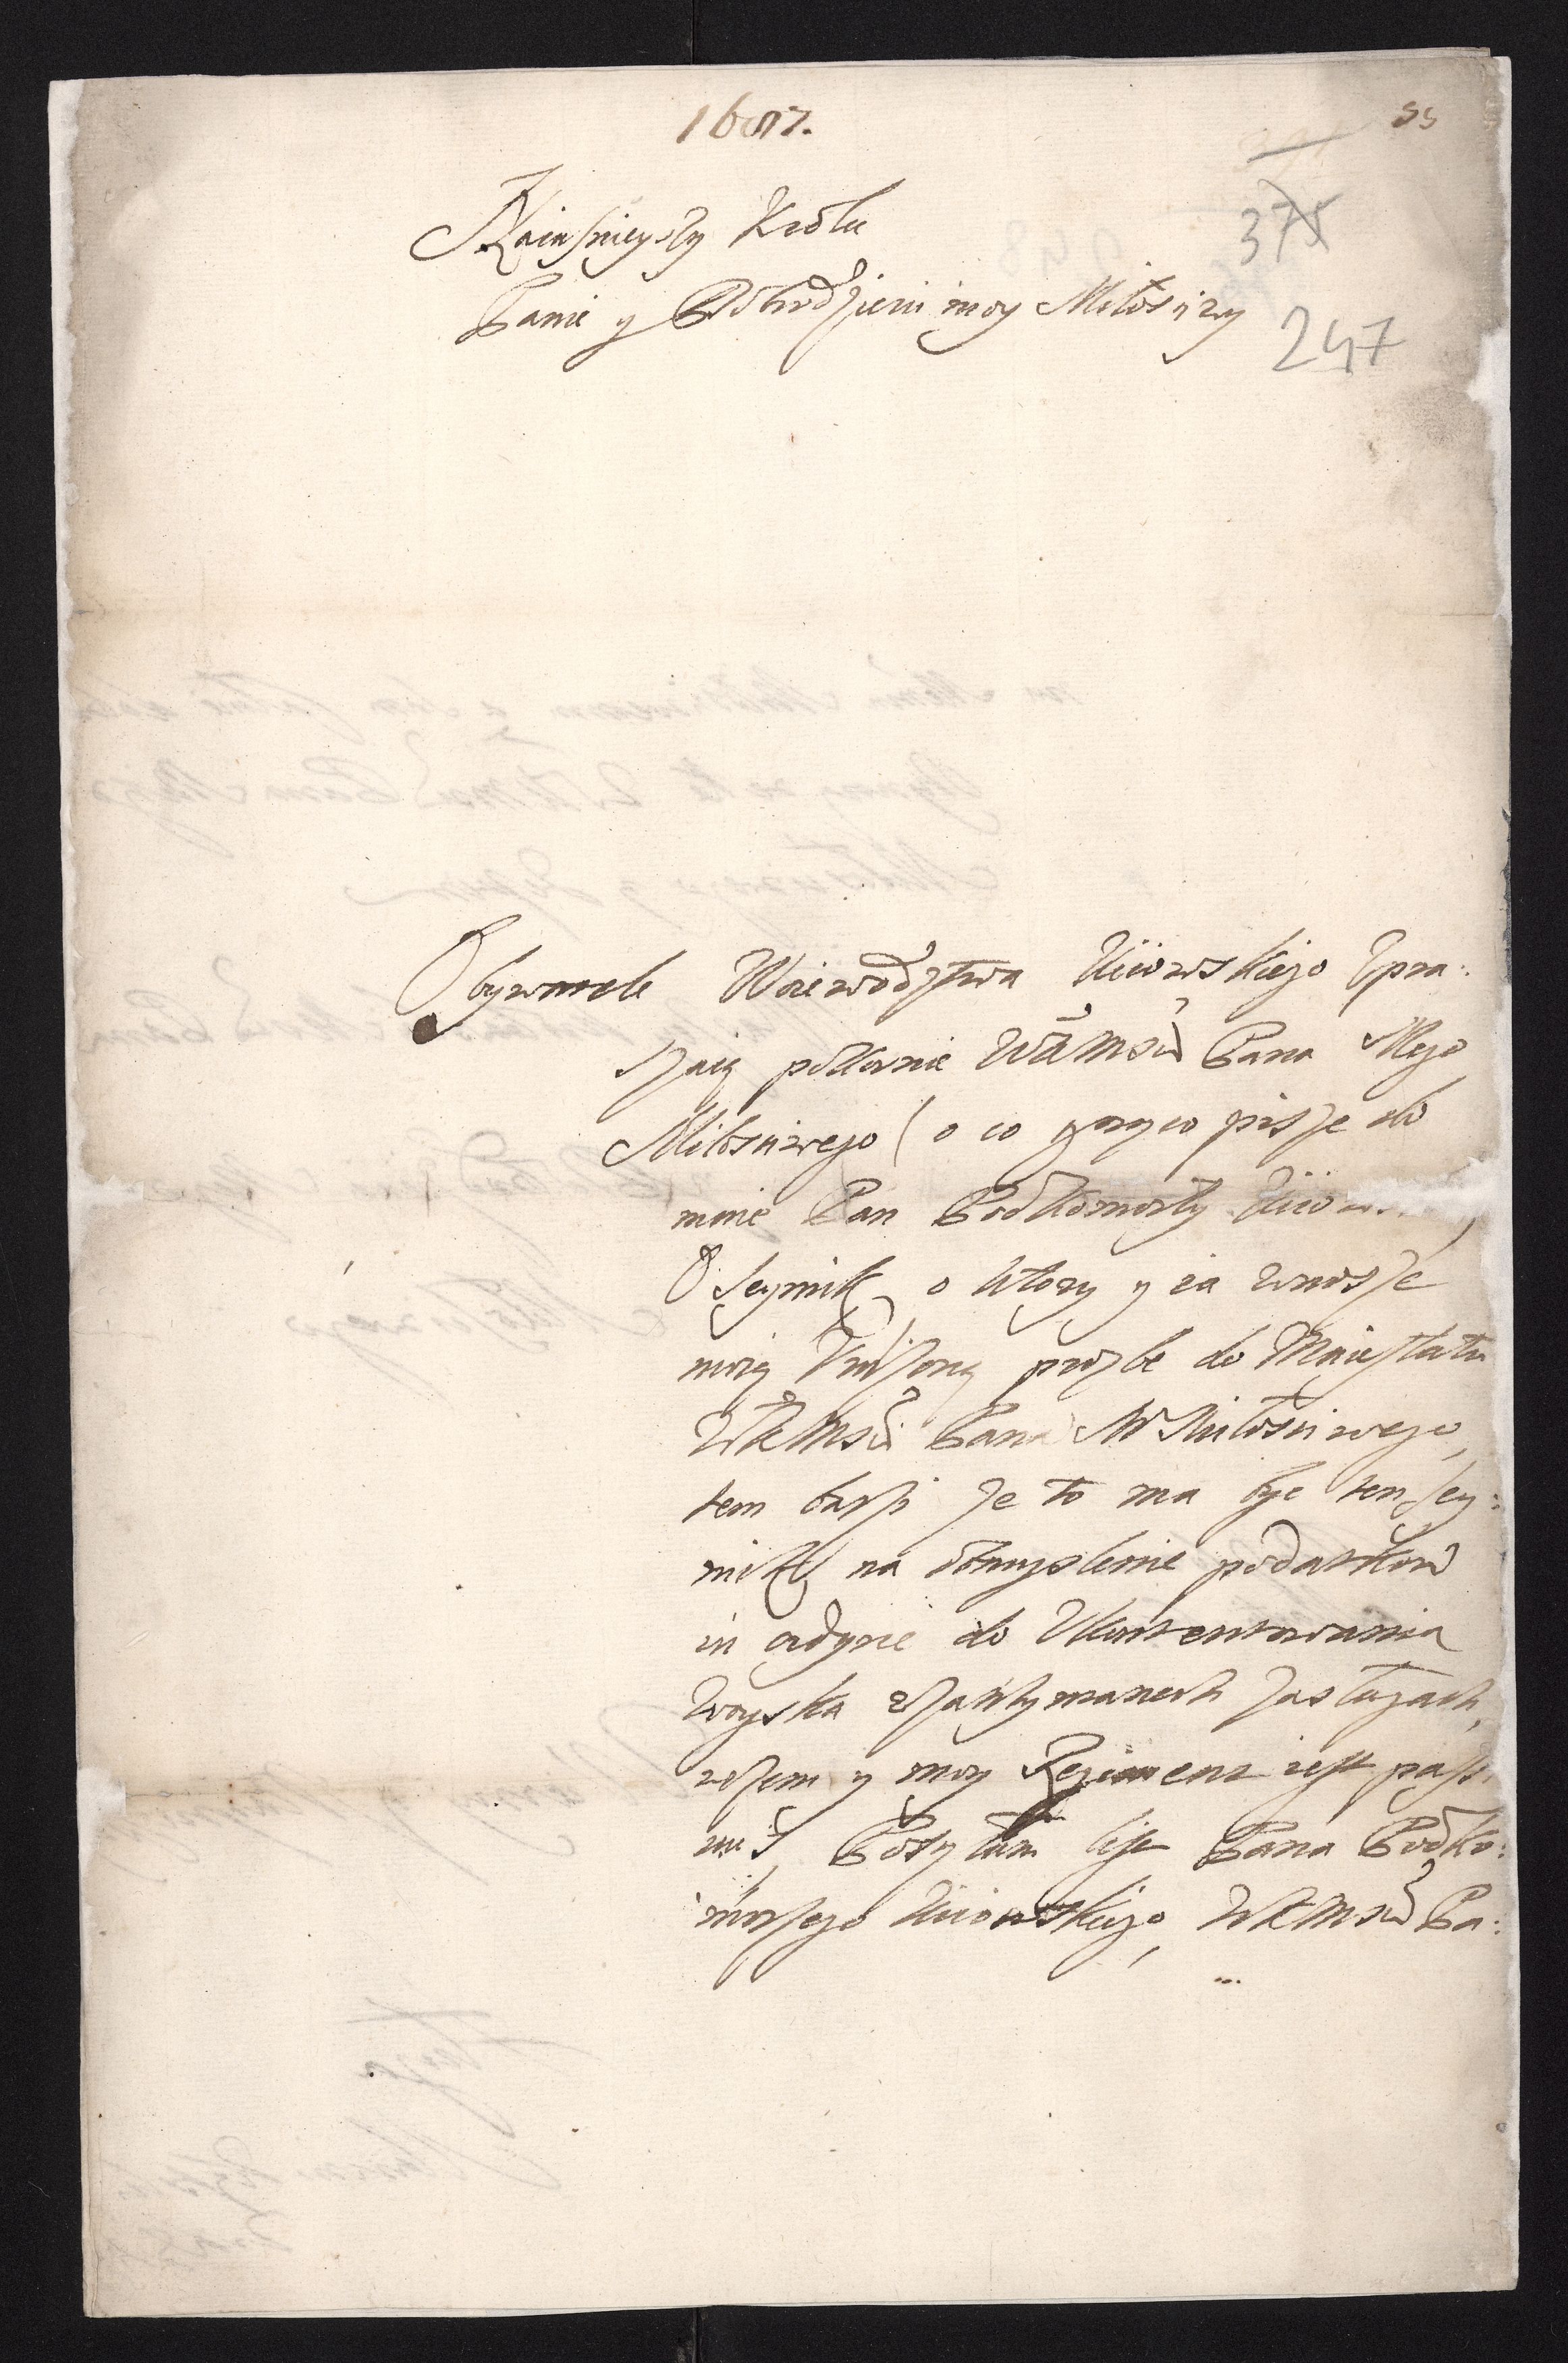 1687.
55
375
247
Naiasnieyszy Krolu
Panie y Dobrodzieiu moy Miłosciwy
Obywatele Woiewodztwa Kiiowskiego Upra:
szaią pokornie WKMsci Pana Mego
Miłosciwego ( o co y pisze do
mnie Pan Podkomorzy
O Seymik, o ktory y ia wnosze
moią Unizoną prozbe do Maiestatu
WKMsci Pana M Miłosciwego,
tem barzi ze to ma byc ten Sey:
mik na obmyslenie podatkow
in ordyne do Ukontentowania
woyska w zatrzymanech zasługach,
w ktorem y moy Regiment iest
Posyłam list Pana Podko:
morzego Kiiowskiego, WKMsci Pa: